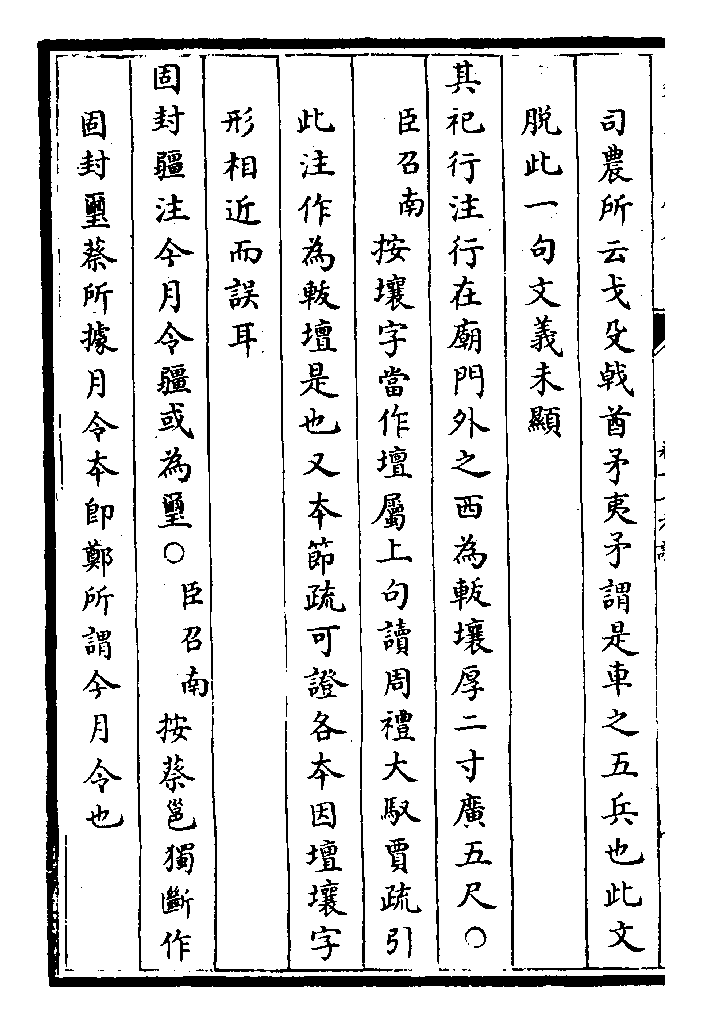 司農所云戈殳戟酋矛夷矛謂是車之五兵也此文
脱此一句文義未顯
其祀行注行在廟門外之西為軷壤厚二寸廣五尺○
臣召南按壤字當作壇屬上句讀周禮大馭賈疏引
此注作為軷壇是也又本節疏可證各本因壇壤字
形相近而誤耳
固封疆注今月令疆或為壐○臣召南按蔡邕獨斷作
固封壐蔡所據月令本即鄭所謂今月令也